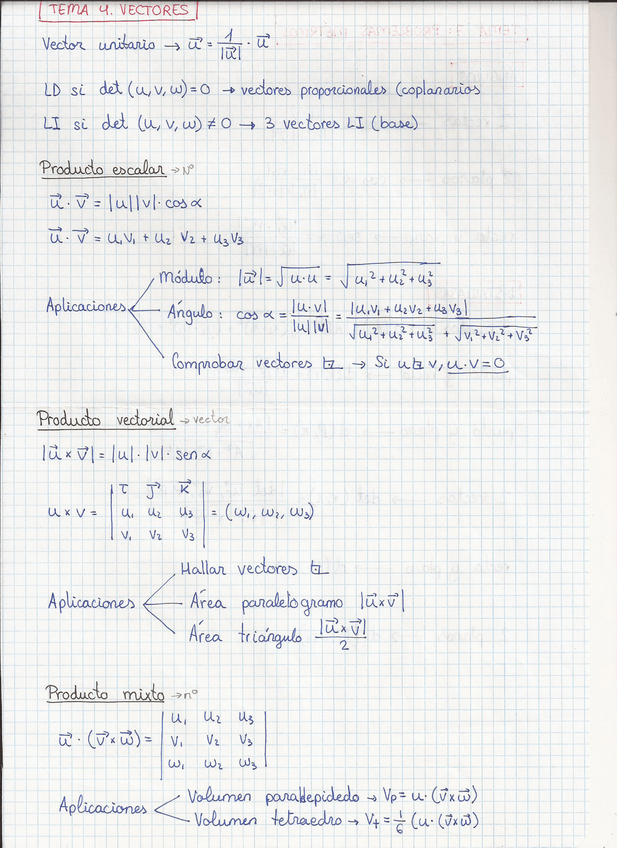 TEMA 4. VECTORES
Vector unitario → u⃗ = 1/|u⃗| · u⃗
LD si det (u, v, w) = 0 → vectores proporcionales (coplanarios
LI si det (u, v, w) ≠ 0 → 3 vectores LI (base)
Producto escalar → Nº
u⃗ · v⃗ = |u||v| · cos α
u⃗ · v⃗ = u₁v₁ + u₂ v₂ + u₃v₃
Aplicaciones
Módulo: |u⃗| = √(u·u) = √(u₁² + u₂² + u₃²)
Ángulo: cos α = |u·v| / |u||v| = |u₁v₁ + u₂v₂ + u₃v₃| / √(u₁² + u₂² + u₃²) + √(v₁² + v₂² + v₃²)
Comprobar vectores ⊥ → Si u ⊥ v, u·v = 0
Producto vectorial → vector
|u⃗ × v⃗| = |u| · |v| · sen α
u × v = | i⃗ j⃗ k⃗ |
| u₁ u₂ u₃ | = (w₁, w₂, w₃)
| v₁ v₂ v₃ |
Aplicaciones
Hallar vectores ⊥
Área paralelogramo |u⃗×v⃗|
Área triángulo |u⃗×v⃗| / 2
Producto mixto → nº
u⃗ · (v⃗×w⃗) = | u₁ u₂ u₃ |
| v₁ v₂ v₃ |
| w₁ w₂ w₃ |
Aplicaciones
Volumen paralelepidedo → Vp = u · (v⃗×w⃗)
Volumen tetraedro → Vt = 1/6 (u · (v⃗×w⃗)